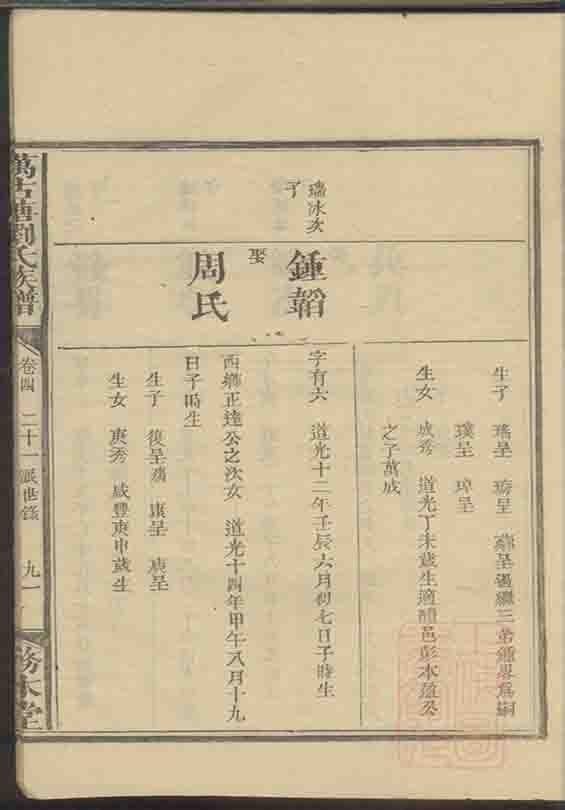 生子 瑤呈 琦呈 呈過繼三弟鍾畧爲嗣
璞呈 琸呈
生女 成秀 道光丁未歲生適醴邑彭本盈公
之子萬成
瑞冰次
子
鍾韜
字有六 道光十二年壬辰六月初七日子時生
娶
周氏
西鄉正達公之次女 道光十四年甲午八月十九
日子時生
生子 復呈 康呈 呈
生女 庚秀 咸豐庚申歲生
萬古塘劉氏族譜
卷四 二十一派世錄
九一
務本堂